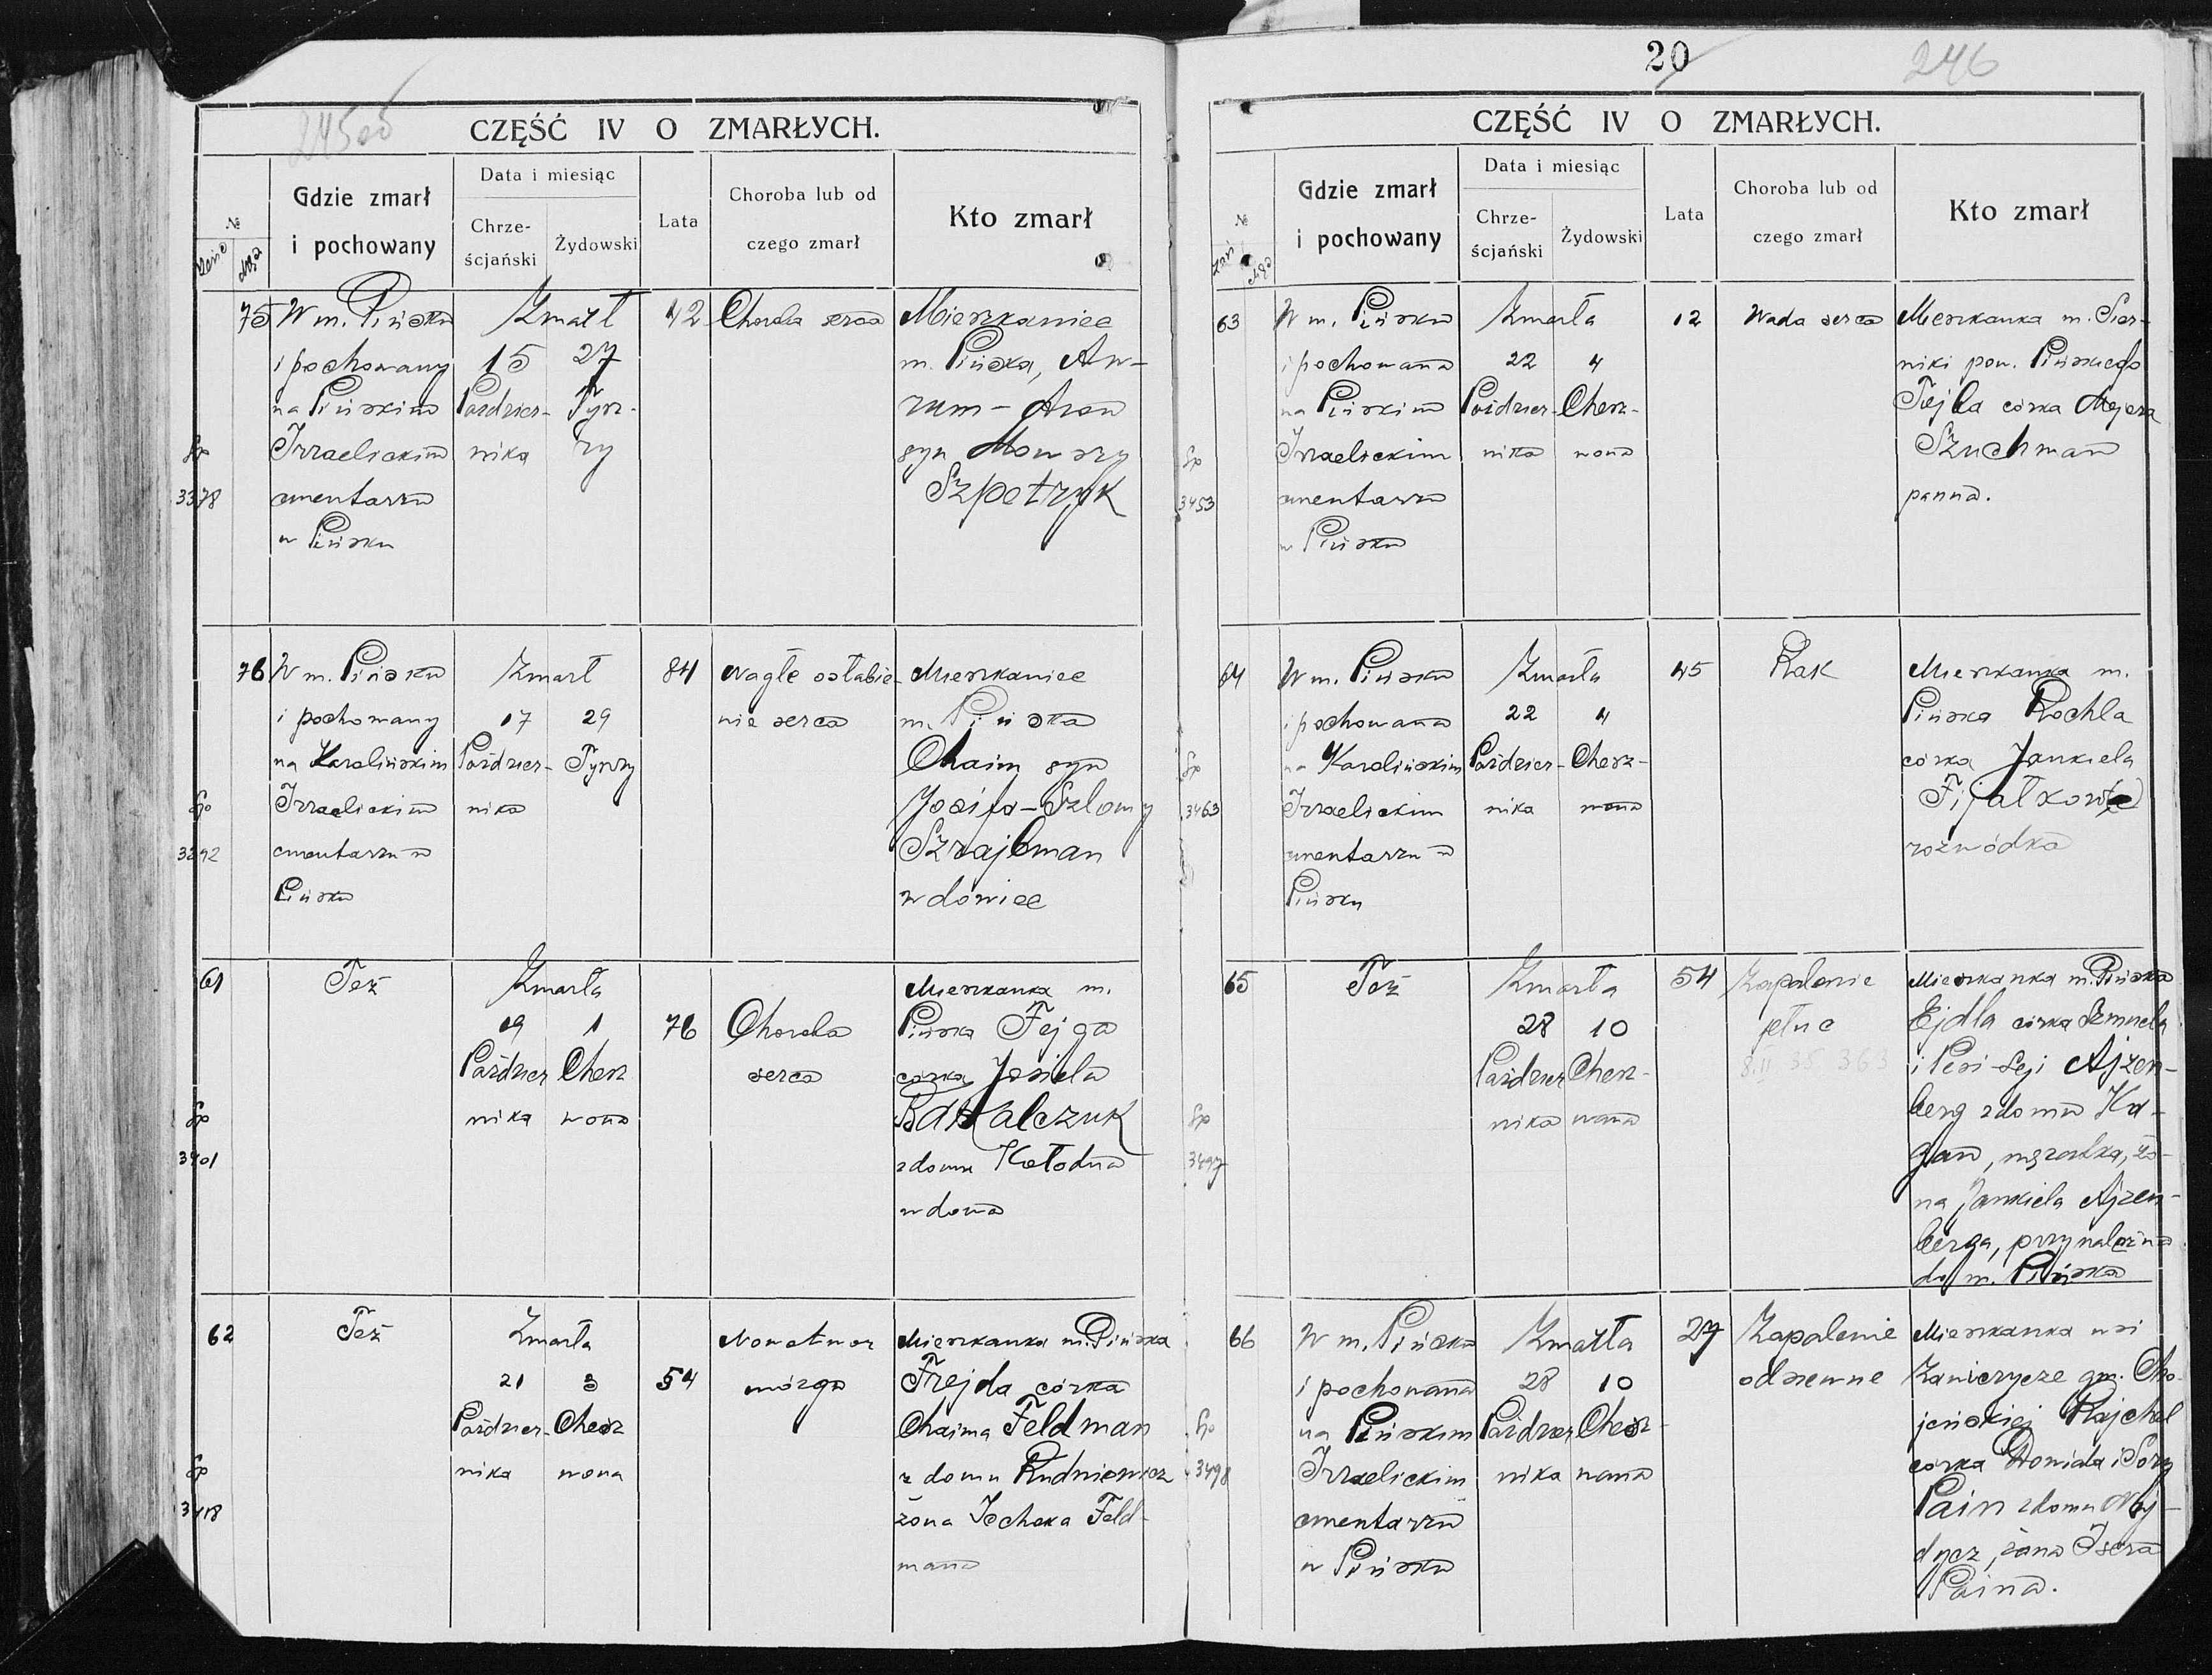 245 об
CZĘŚĆ IV O ZMARŁYCH.
№
Gdzie zmarł
i pochowany
Data i miesiąc
Chrze-
ścjański
Żydowski
Lata
Choroba lub od
czego zmarł
Kto zmarł
75
W m. Pińsku
i pochowany
na Pińskim
Izraelickim
cmentarzu
w Pińsku
Zmarł
15 27
Paździer- Tysz-
nika ry
42
Choroba serca
Mieszkaniec
m. Pińska, Aw-
rum-Aron
syn Mowszy
Szpetryk
Sp
3378
76
W m. Pińsku
i pochowany
na Karolińskim
Izraelickim
cmentarzu w
Pińsku
Zmarł
17 29
Paździer- Tyszry
nika
84
Nagłe osłabie-
nie serca
Mieszkaniec
m. Pińska
Chaim syn
Josifa-Szlomy
Szrajbman
wdowiec
Sp
3292
61
Też
Zmarła
19 1
Paździer Chesz
nika wona
76
Choroba
serca
Mieszkanka m.
Pińska Fejga
córka Josiela
Bakalczuk
z domu Kołodna
wdowa
Sp
3401
62
Też
Zmarła
21 3
Paździer- Chesz
nika wona
54
Nowotwor
mózgu
Mieszkanka m. Pińska
Frejda córka
Chaima Feldman
z domu Rudniewicz
żona Icchoka Feld-
mana
Sp
3418
20
246
CZĘŚĆ IV O ZMARŁYCH.
№
Gdzie zmarł
i pochowany
Data i miesiąc
Chrze-
ścjański
Żydowski
Lata
Choroba lub od
czego zmarł
Kto zmarł
63
W m. Pińsku
i pochowana
na Pińskim
Izraelickim
cmentarzu
w Pińsku
Zmarła
22 4
Paździer- Chesz-
nika wona
12
Wada serca
Mieszkanka m. Ser-
niki pow. Pińskiego
Tejba córka Mejera
Szuchman
panna.
Sp
3453
64
W m. Pińsku
i pochowana
na Karolińskim
Izraelickim
cmentarzu w
Pińsku
Zmarła
22 4
Paździer- Chesz-
nika wona
45
Rak
Mieszkanka m.
Pińska Rochla
córka Jankiela
Fijałkow
rozwódka
Sp
3463
65
Też
Zmarła
28 10
Paździer Chesz-
nika wana
54
Zapalenie
płuc
8.II 35 363
Mieszkanka m. Pińska
Ejdla córka Szmuela
i Pesi-Leji Ajzen-
berg z domu Ka-
gan, mężatka, żo-
na Jankiela Ajzen-
berga, przynależna
do m. Pińska
Sp
3497
66
W m. Pińsku
i pochowana
na Pińskim
Izraelickim
cmentarzu
w Pińsku
Zmarła
28 10
Paździer Chesz-
nika wana
27
Zapalenie
odsewne
Mieszkanka wsi
Zawiczycze gm. Cho-
jeńskiej Rajchel
córka Dowida i Sory
Pain z domu Naj-
dycz, żona Isera
Paina.
Sp
3498